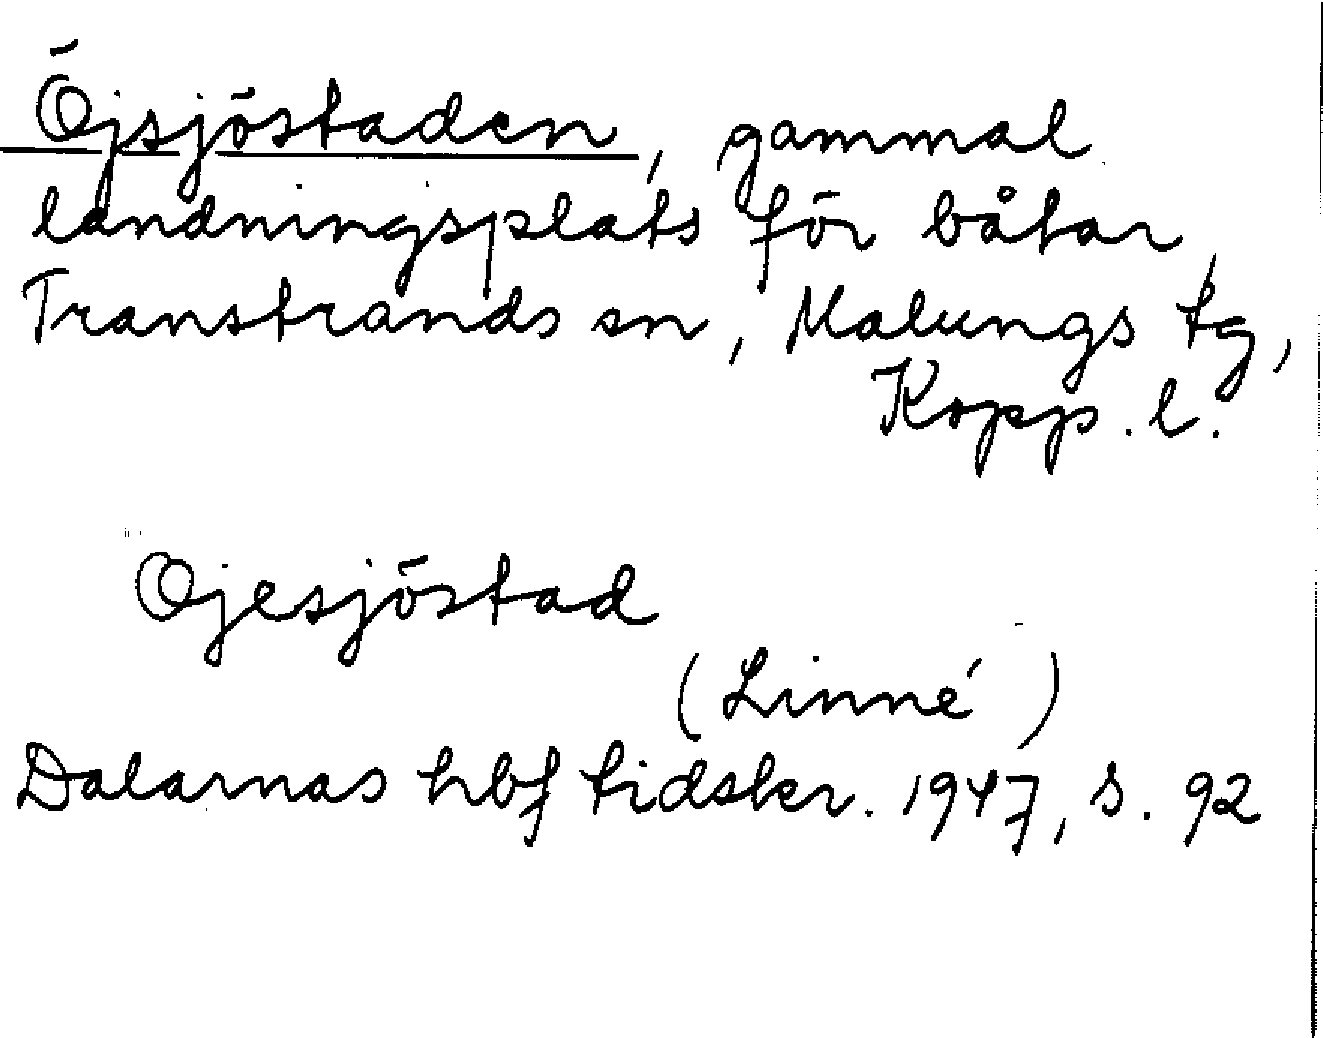 Öjsjöstaden, gammal
landningsplats för båtar,
Transtrands sn, Malungs tg,
Kopp. l.
Ojesjöstad
(Linné)
Dalarnas hbf tidskr. 1947, s. 92